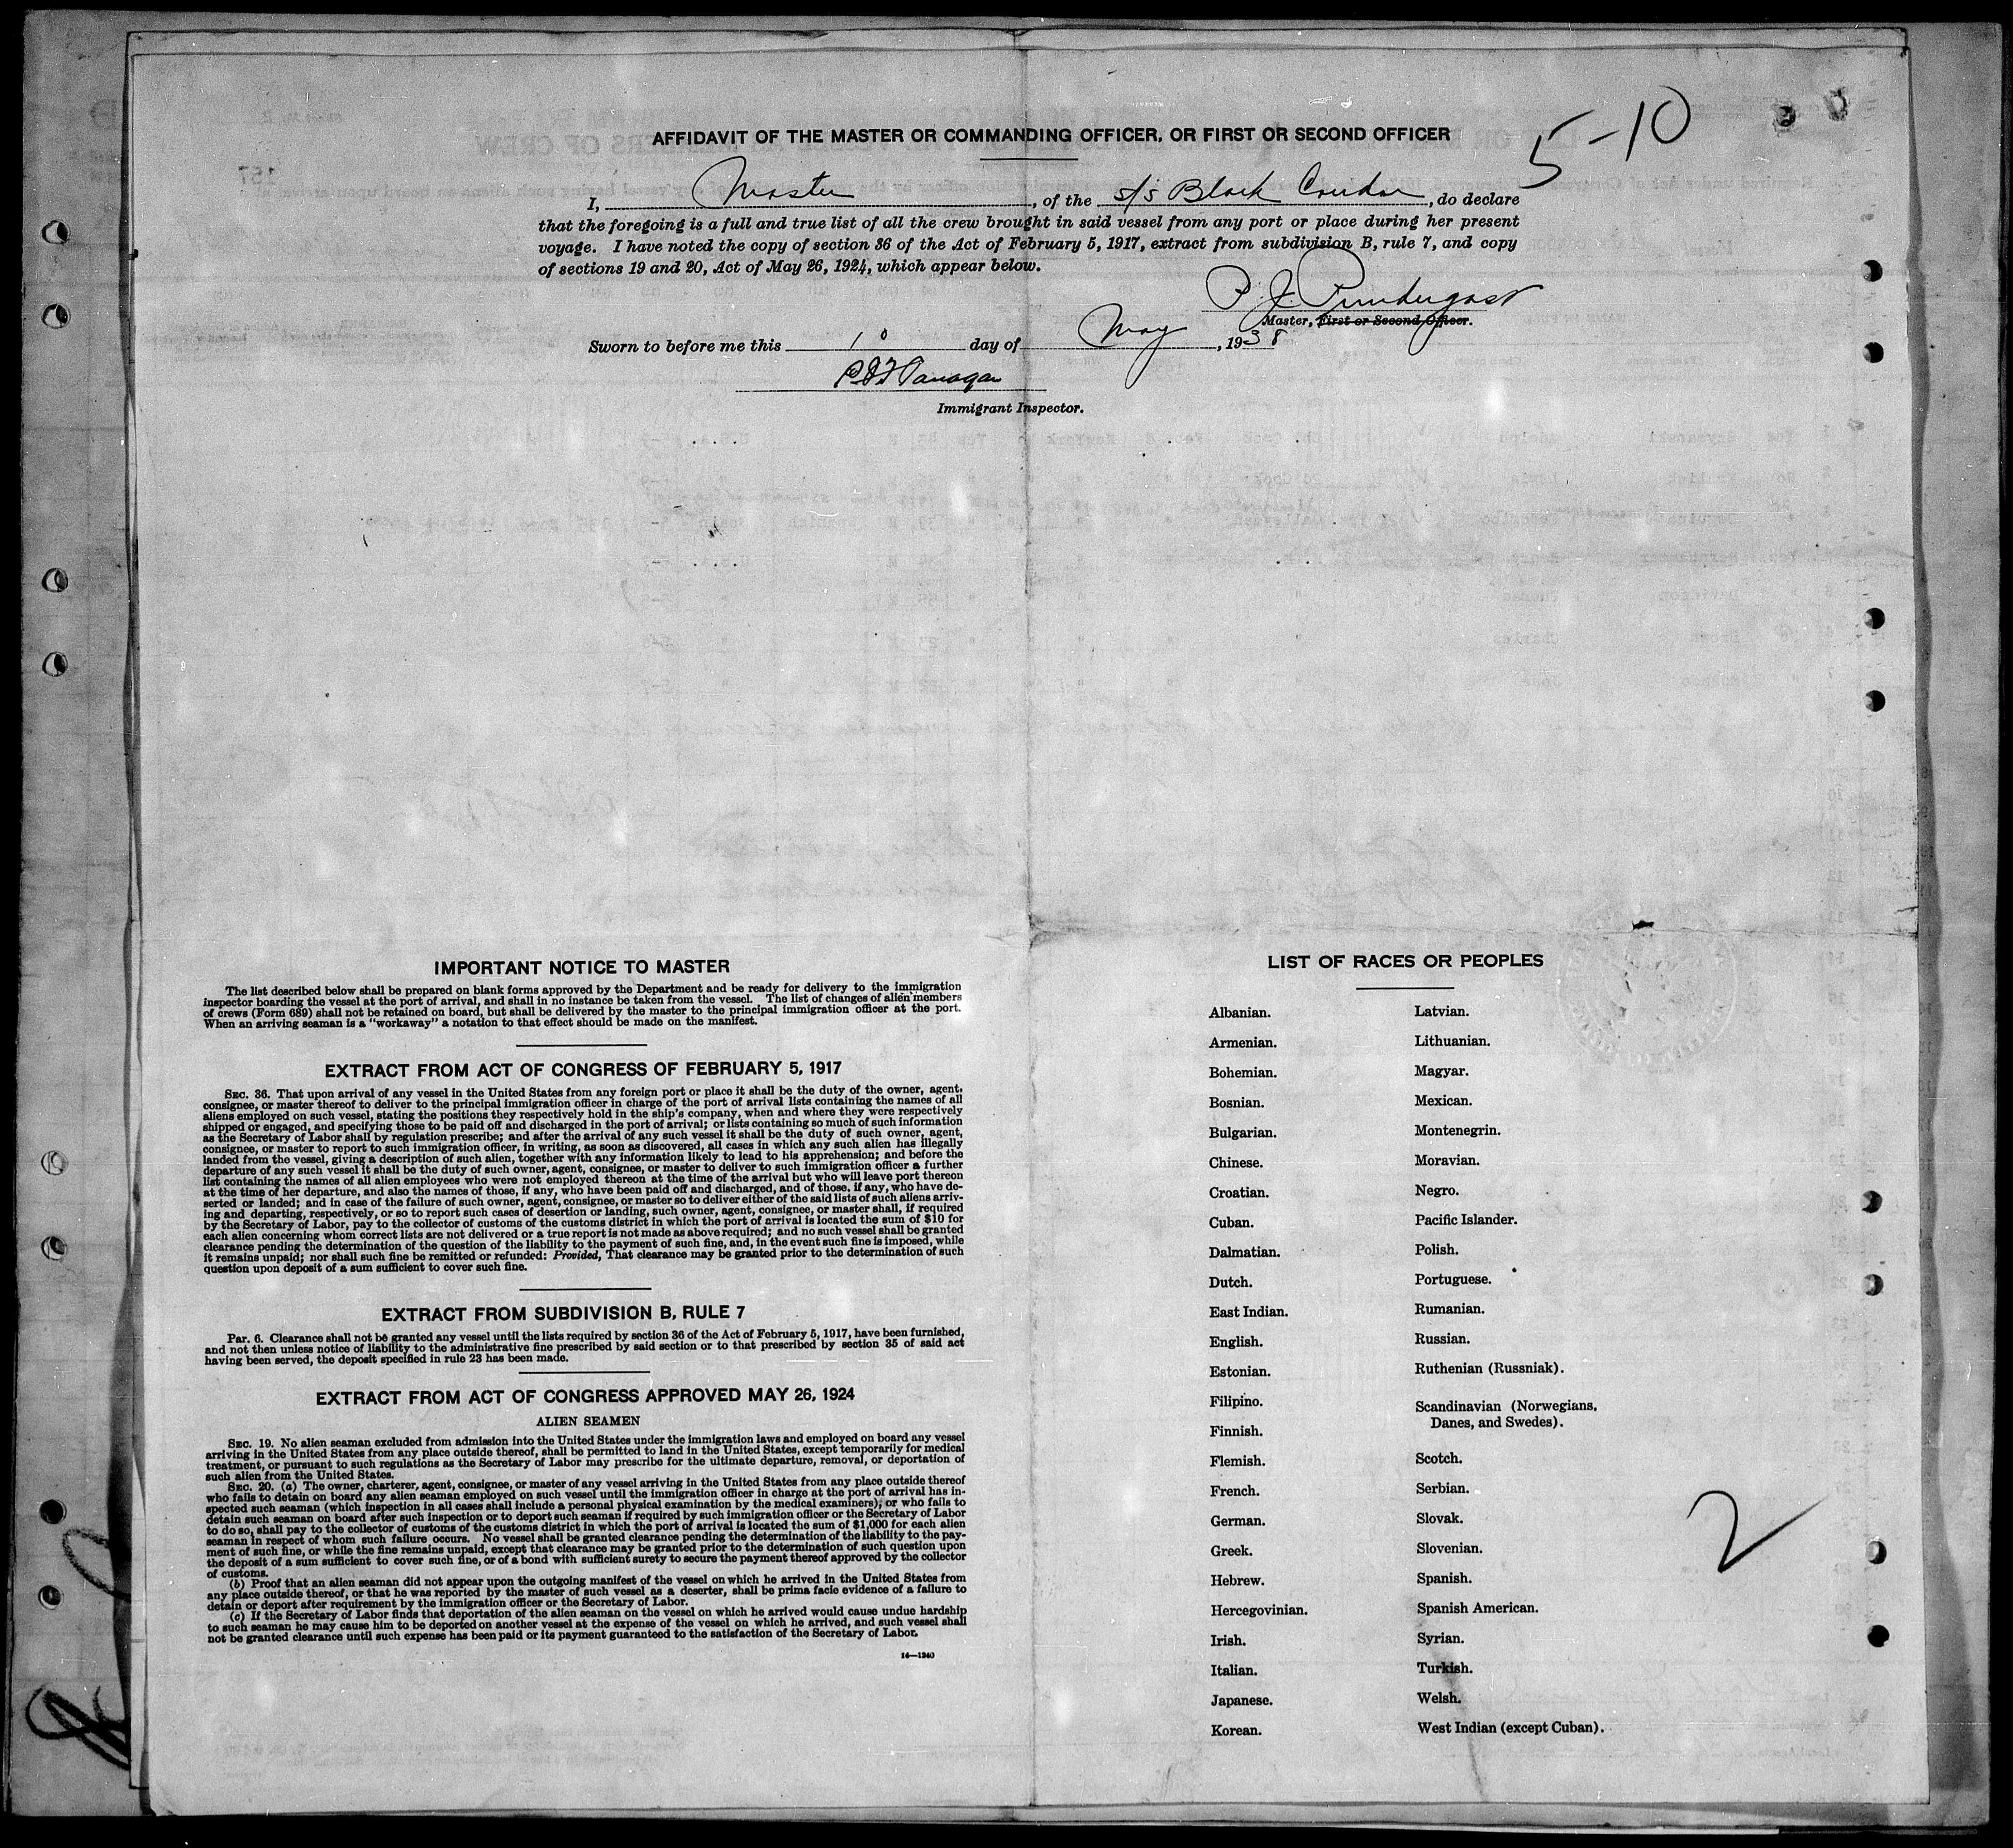 5-10
AFFIDAVIT OF THE MASTER OR COMMANDING OFFICER, OR FIRST OR SECOND OFFICER
I, Master, of the s/s Black Condor, do declare
that the foregoing is a full and true list of all the crew brought in said vessel from any port or place during her present
voyage. I have noted the copy of section 36 of the Act of February 5, 1917, extract from subdivision B, rule 7, and copy
of sections 19 and 20, Act of May 26, 1924, which appear below.
P. J. Prendergast
Master, First or Second Officer.
Sworn to before me this 10 day of May, 1938
Flanagan
Immigrant Inspector.
IMPORTANT NOTICE TO MASTER
The list described below shall be prepared on blank forms approved by the Department and be ready for delivery to the immigration
inspector boarding the vessel at the port of arrival, and shall in no instance be taken from the vessel. The list of changes of alien members
of crews (Form 689) shall not be retained on board, but shall be delivered by the master to the principal immigration officer at the port.
When an arriving seaman is a "workaway" a notation to that effect should be made on the manifest.
EXTRACT FROM ACT OF CONGRESS OF FEBRUARY 5, 1917
SEC. 36. That upon arrival of any vessel in the United States from any foreign port or place it shall be the duty of the owner, agent,
consignee, or master thereof to deliver to the principal immigration officer in charge of the port of arrival lists containing the names of all
aliens employed on such vessel, stating the positions they respectively hold in the ship's company, when and where they were respectively
shipped or engaged, and specifying those to be paid off and discharged in the port of arrival; or lists containing so much of such information
as the Secretary of Labor shall by regulation prescribe; and after the arrival of any such vessel it shall be the duty of such owner, agent,
consignee, or master to report to such immigration officer, in writing, as soon as discovered, all cases in which any such alien has illegally
landed from the vessel, giving a description of such alien, together with any information likely to lead to his apprehension; and before the
departure of any such vessel it shall be the duty of such owner, agent, consignee, or master to deliver to such immigration officer a further
list containing the names of all alien employees who were not employed thereon at the time of the arrival but who will leave port thereon
at the time of her departure, and also the names of those, if any, who have been paid off and discharged, and of those, if any, who have de-
serted or landed; and in case of the failure of such owner, agent, consignee, or master so to deliver either of the said lists of such aliens arriv-
ing and departing, respectively, or so to report such cases of desertion or landing, such owner, agent, consignee, or master shall, if required
by the Secretary of Labor, pay to the collector of customs of the customs district in which the port of arrival is located the sum of $10 for
each alien concerning whom correct lists are not delivered or a true report is not made as above required; and no such vessel shall be granted
clearance pending the determination of the question of the liability to the payment of such fine, and, in the event such fine is imposed, while
it remains unpaid; nor shall such fine be remitted or refunded: Provided, That clearance may be granted prior to the determination of such
question upon deposit of a sum sufficient to cover such fine.
EXTRACT FROM SUBDIVISION B, RULE 7
Par. 6. Clearance shall not be granted any vessel until the lists required by section 36 of the Act of February 5, 1917, have been furnished,
and not then unless notice of liability to the administrative fine prescribed by said section or to that prescribed by section 35 of said act
having been served, the deposit specified in rule 23 has been made.
EXTRACT FROM ACT OF CONGRESS APPROVED MAY 26, 1924
ALIEN SEAMEN
SEC. 19. No alien seaman excluded from admission into the United States under the immigration laws and employed on board any vessel
arriving in the United States from any place outside thereof, shall be permitted to land in the United States, except temporarily for medical
treatment, or pursuant to such regulations as the Secretary of Labor may prescribe for the ultimate departure, removal, or deportation of
such alien from the United States.
SEC. 20. (a) The owner, charterer, agent, consignee, or master of any vessel arriving in the United States from any place outside thereof
who fails to detain on board any alien seaman employed on such vessel until the immigration officer in charge at the port of arrival has in-
spected such seaman (which inspection in all cases shall include a personal physical examination by the medical examiners), or who fails to
detain such seaman on board after such inspection or to deport such seaman if required by such immigration officer or the Secretary of Labor
to do so, shall pay to the collector of customs of the customs district in which the port of arrival is located the sum of $1,000 for each alien
seaman in respect of whom such failure occurs. No vessel shall be granted clearance pending the determination of the liability to the pay-
ment of such fine, or while the fine remains unpaid, except that clearance may be granted prior to the determination of such question upon
the deposit of a sum sufficient to cover such fine, or of a bond with sufficient surety to secure the payment thereof approved by the collector
of customs.
(b) Proof that an alien seaman did not appear upon the outgoing manifest of the vessel on which he arrived in the United States from
any place outside thereof, or that he was reported by the master of such vessel as a deserter, shall be prima facie evidence of a failure to
detain or deport after requirement by the immigration officer or the Secretary of Labor.
(c) If the Secretary of Labor finds that deportation of the alien seaman on the vessel on which he arrived would cause undue hardship
to such seaman he may cause him to be deported on another vessel at the expense of the vessel on which he arrived, and such vessel shall
not be granted clearance until such expense has been paid or its payment guaranteed to the satisfaction of the Secretary of Labor.
14—1240
LIST OF RACES OR PEOPLES
Albanian.
Armenian.
Bohemian.
Bosnian.
Bulgarian.
Chinese.
Croatian.
Cuban.
Dalmatian.
Dutch.
East Indian.
English.
Estonian.
Filipino.
Finnish.
Flemish.
French.
German.
Greek.
Hebrew.
Hercegovinian.
Irish.
Italian.
Japanese.
Korean.
Latvian.
Lithuanian.
Magyar.
Mexican.
Montenegrin.
Moravian.
Negro.
Pacific Islander.
Polish.
Portuguese.
Rumanian.
Russian.
Ruthenian (Russniak).
Scandinavian (Norwegians,
Danes, and Swedes).
Scotch.
Serbian.
Slovak.
Slovenian.
Spanish.
Spanish American.
Syrian.
Turkish.
Welsh.
West Indian (except Cuban).
2